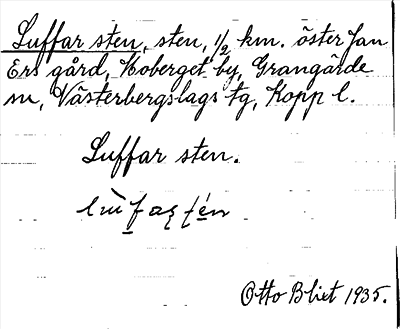 Luffar sten, sten, 1/2 km. öster Jan
Ers gård, Moberget by, Grangärde
sn, Västerbergslags tg, Kopp l.
Luffar sten.
Otto Blixt 1935.